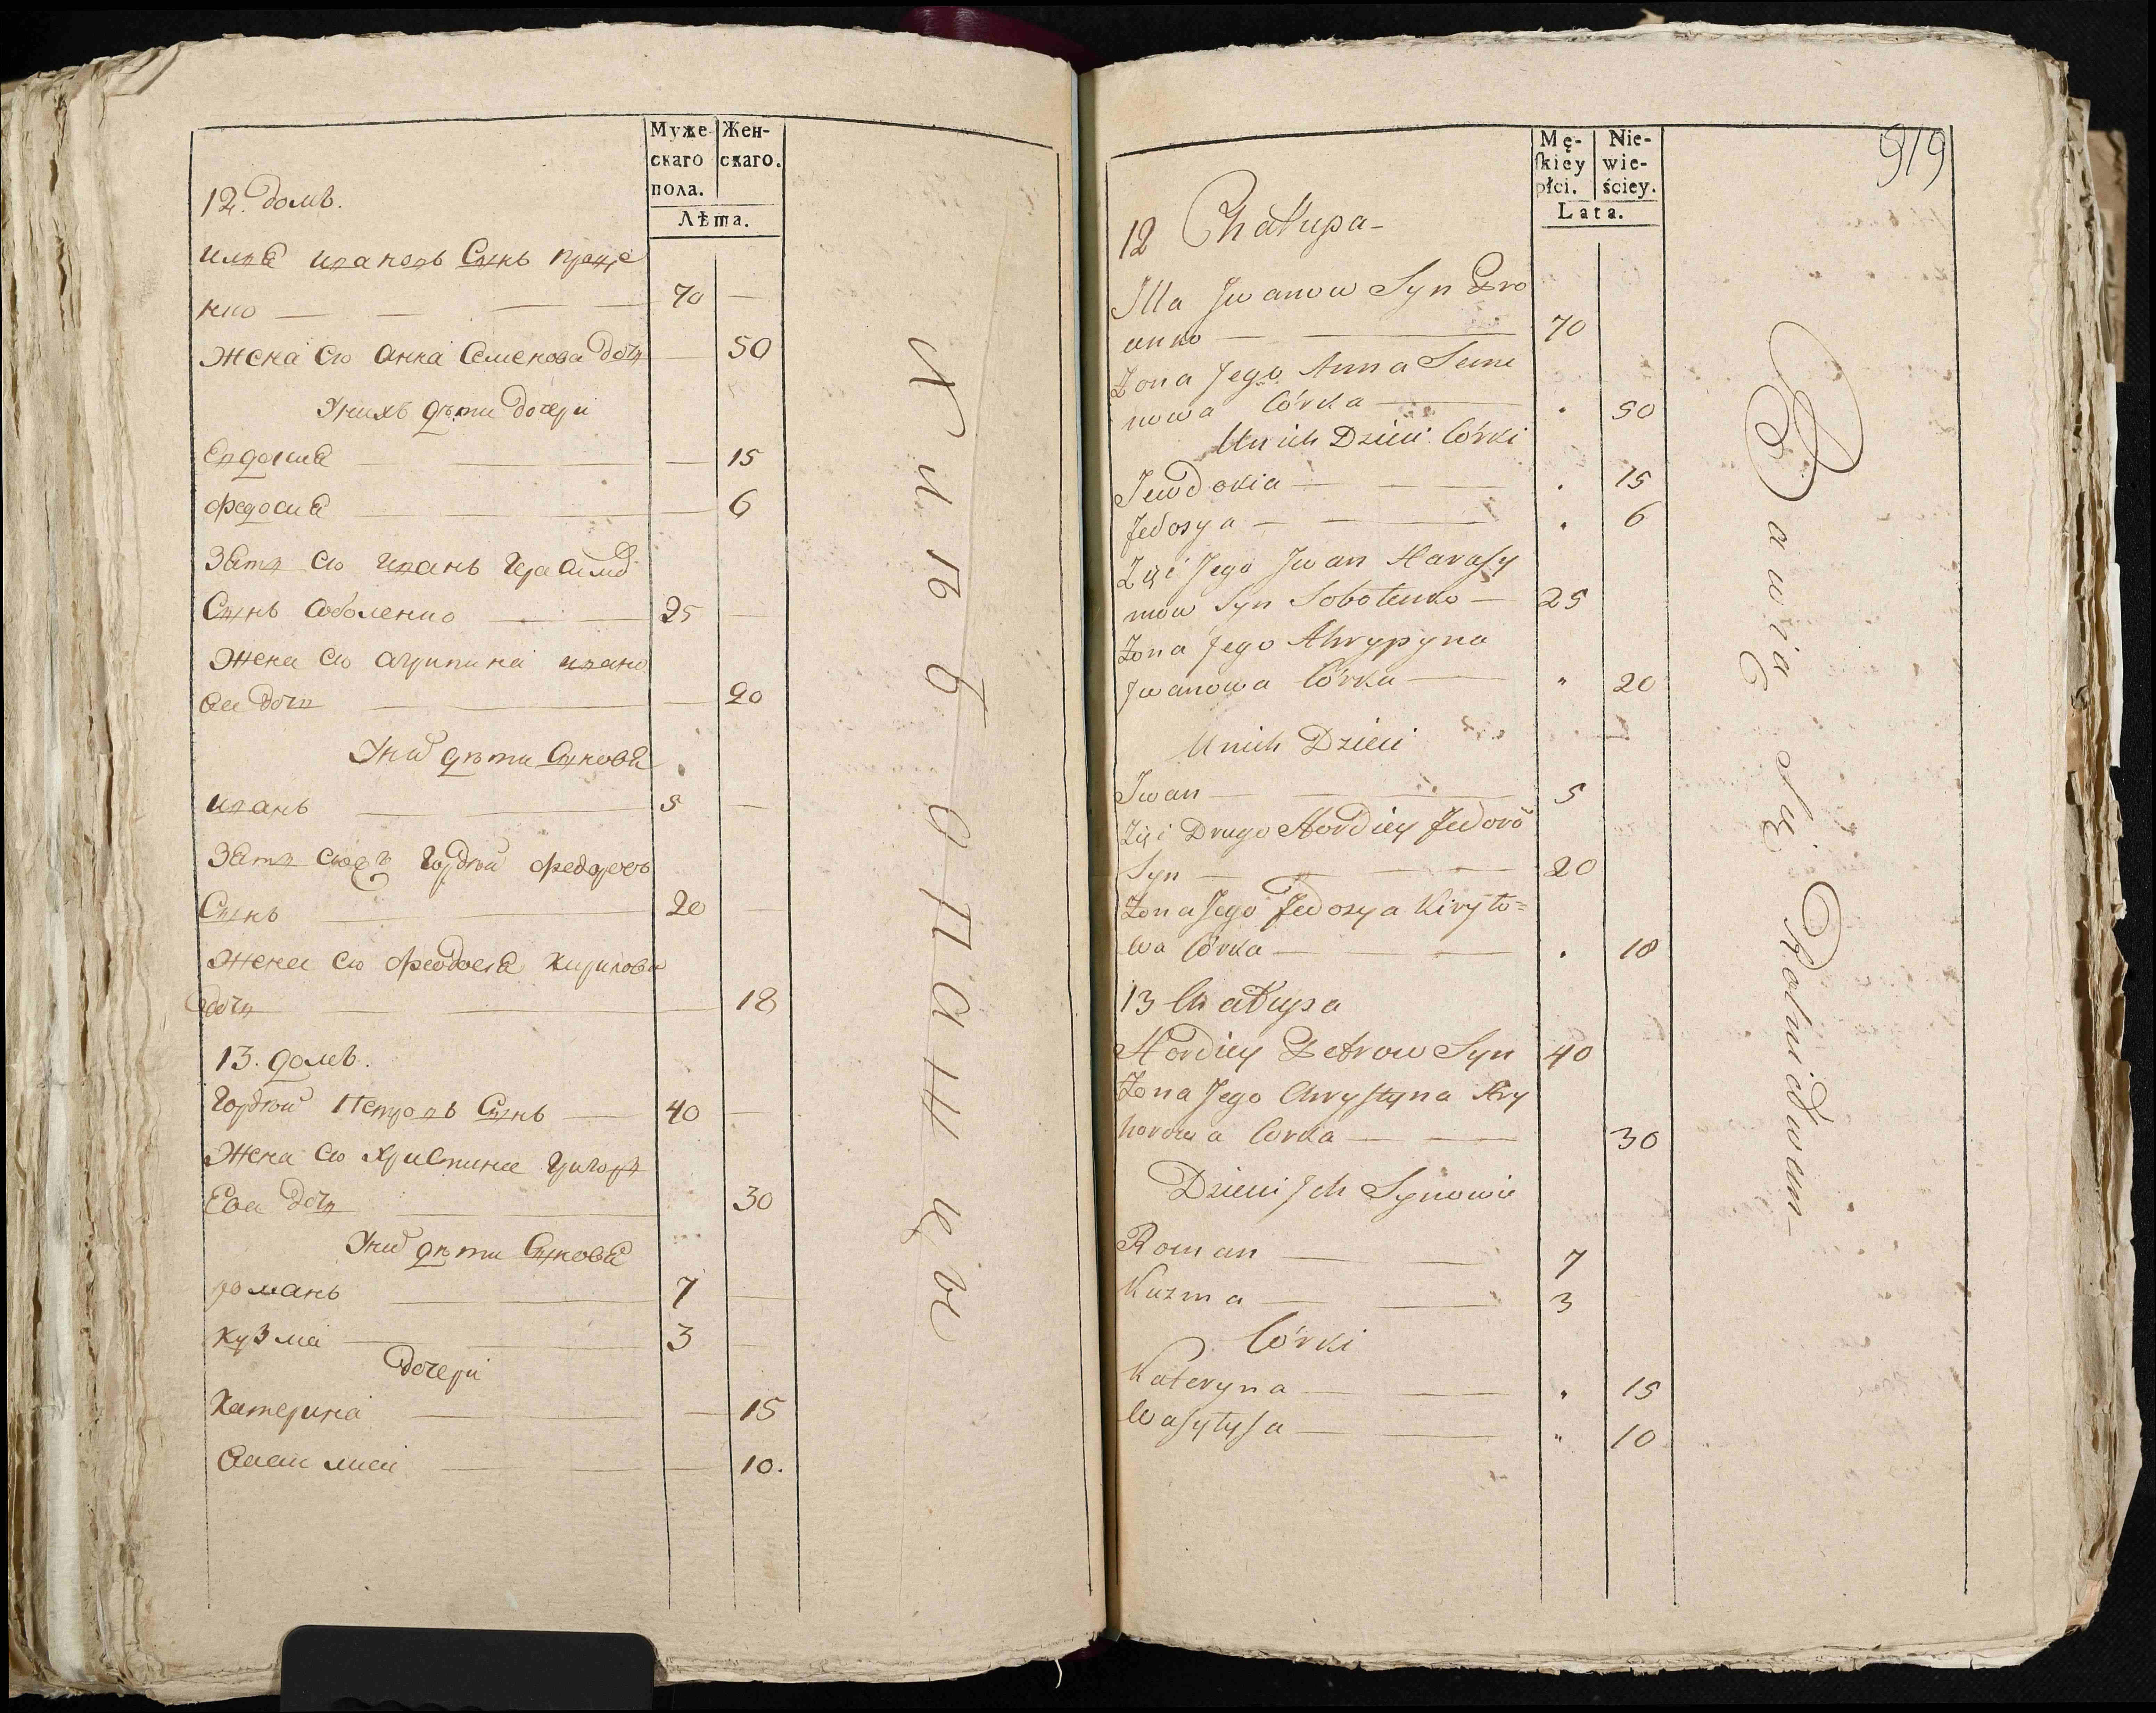 Муже- Жен-
скаго скаго.
пола.
Лѣта.
12. домъ.
илия ивановъ Сынъ
нко — 70 —
жена его анна Семенова дочь — 50
Унихъ дѣти дочери
Евдокия — 15
Федосия — 6
Зять его иванъ Герасимо
Сынъ Соболенко — 25 —
Жена его агрипина ивано
ва дочь — 20
Уних дѣти Сыновя
иванъ — 5 —
Зять Гордѣй Федоровъ
Сынъ — 20 —
Жена его Феодосия Кирилова
дочь — 18
13. домъ.
Гордѣй Петровъ Сынъ — 40 —
Жена его Христина Григорь
Ева дочь — 30
Уних дѣти Сыновя
романъ — 7 —
кузма — 3 —
дочери
Катерина — 15
Васи лиса — 10.
Хлѣбопашцы
919
Mę- Nie-
skiey wie-
płci. ściey.
Lata.
12 Chałupa -
Illa Jwanow Syn Pro
anko — 70
Zona Jego Anna Seme
nowa Córka — . 50
Unich Dzieci Córki
Jewdokia — . 15
Fedosya — . 6
Zięć Jego Jwan Harasy
mow Syn Sobolenko — 25
Zona Jego Ahrypyna
Jwanowa Córka — " 20
Unich Dzieci
Jwan — 5
Zięć Drugo Hordiey Fedoró
Syn — 20
Zona Jego Fedosya Kiryło=
wa Córka — . 18
13 Chałupa
Hordiey Petrow Syn 40
Zona Jego Chrystyna Hry
horowa Corka — 30
Dzieci Jch Synowie
Roman — 7
Kuzma — 3
Córki
Kateryna — . 15
Wasyłysa — " 10
Bawią się Rolnictwem -